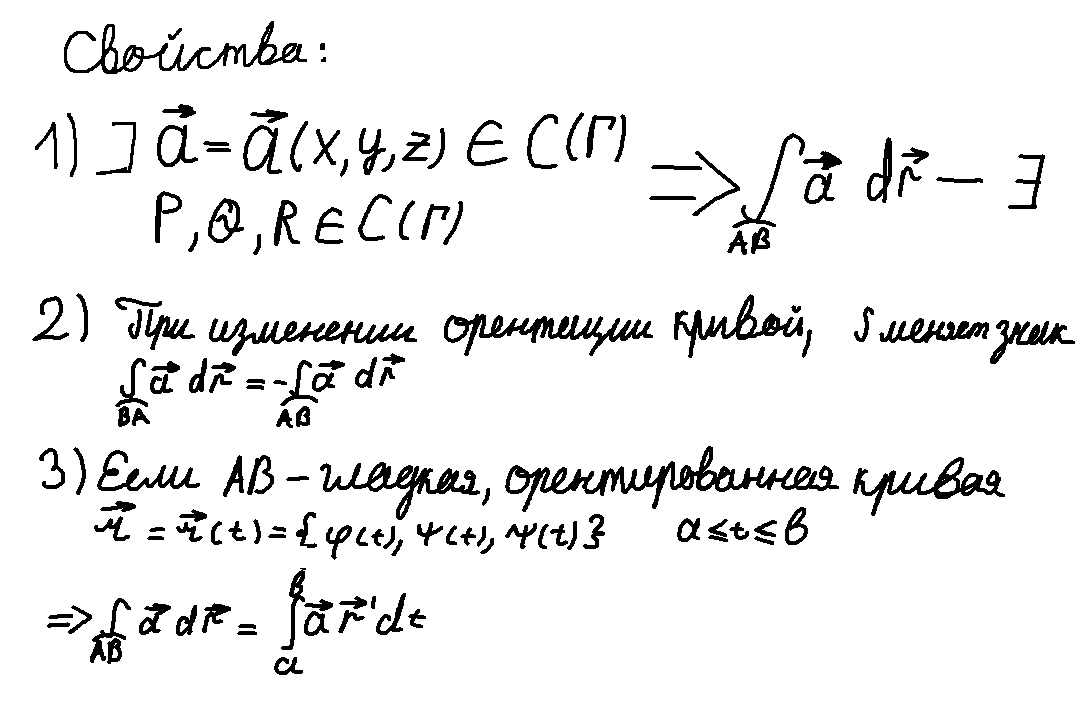 Свойства:
1) ∃ a⃗ = a⃗(x, y, z) ∈ C(Γ) ⟹ ∫ a⃗ dr⃗ — ∃
P, Q, R ∈ C(Γ) AB
2) При изменении орентации кривой, ∫ меняет знак
∫ a⃗ dr⃗ = -∫ a⃗ dr⃗
BA AB
3) Если AB – гладкая, орентированная кривая
r⃗ = r⃗(t) = {φ(t), ψ(t), ψ(t)} a ≤ t ≤ b
b
⟹ ∫ a⃗ dr⃗ = ∫ a⃗ r⃗' dt
AB a